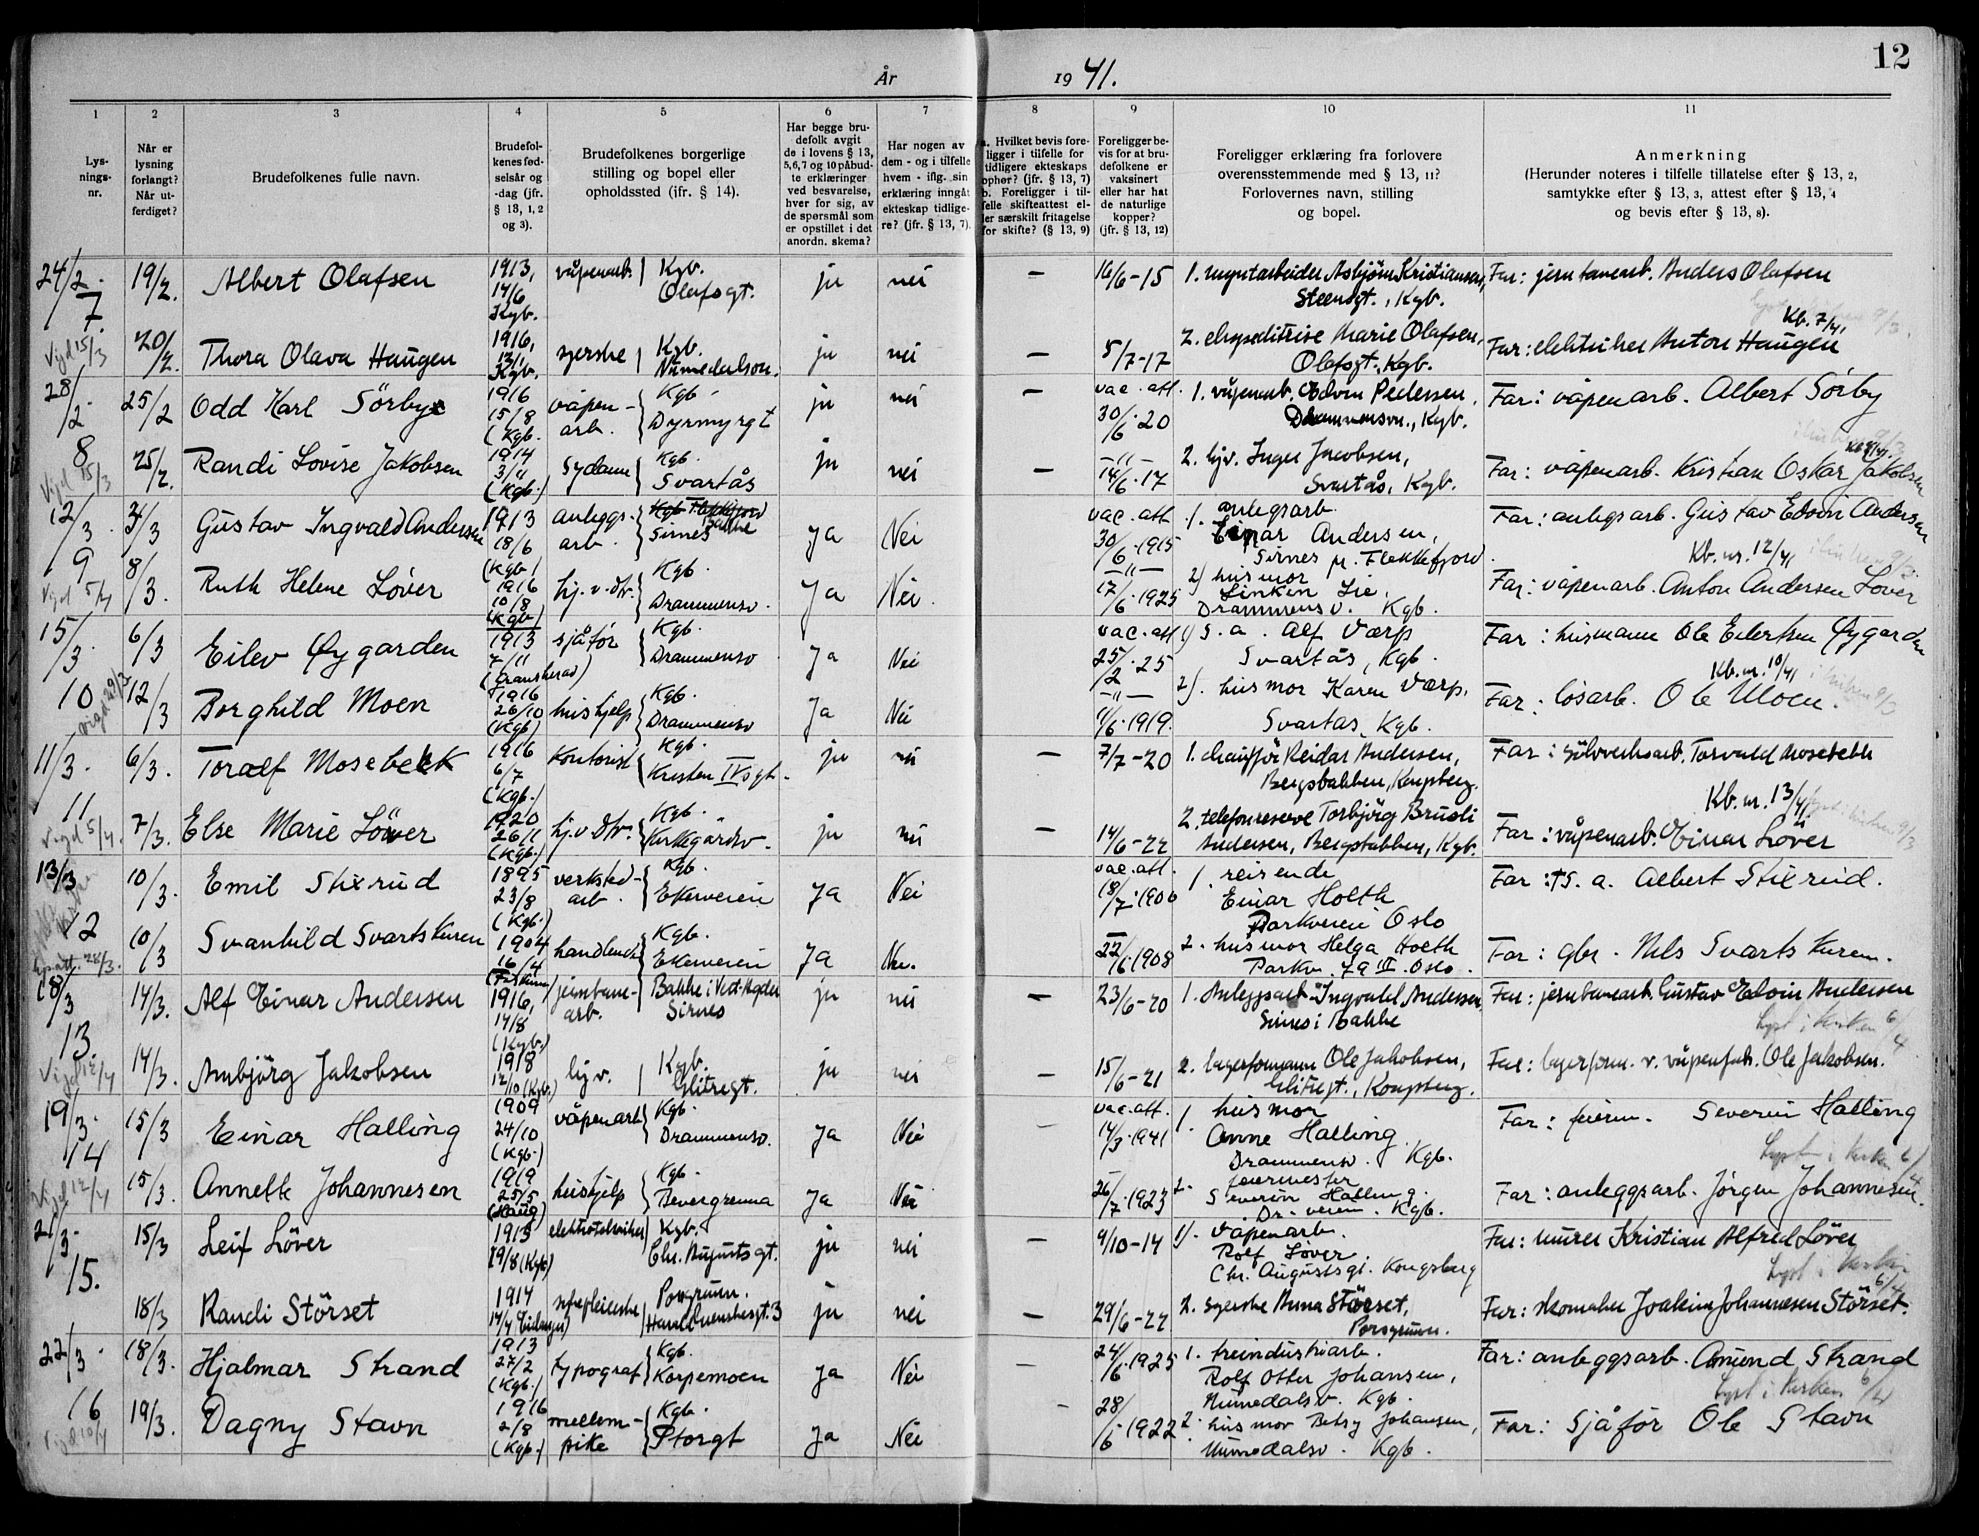 12
År 1941.
1 2 3 4 5 6 7 8 9 10 11
Lys-
nings-
nr.
Når er
lysning
forlangt?
Når ut-
ferdiget?
Brudefolkenes fulle navn.
Brudefol-
kenes fød-
selsår og
-dag (jfr.
§ 13, 1, 2
og 3).
Brudefolkenes borgerlige
stilling og bopel eller
opholdssted (jfr. § 14).
Har begge bru-
defolk avgit
de i lovens § 13,
5,6,7 og 10 påbud-
te erklæringer
ved besvarelse,
hver for sig, av
de spørsmål som
er opstillet i det
anordn. skema?
Har nogen av
dem - og i tilfelle
hvem - iflg. sin
erklæring inngått
ekteskap tidlige-
re? (jfr. § 13, 7).
a. Hvilket bevis fore-
ligger i tilfelle for
tidligere ekteskaps
ophør? (jfr. § 13, 7)
b. Foreligger i til-
felle skifteattest el-
ler særskilt fritagelse
for skifte? (§ 13, 9)
Foreligger be-
vis for at bru-
defolkene er
vaksinert
eller har hat
de naturlige
kopper?
(jfr. § 13, 12)
Foreligger erklæring fra forlovere
overensstemmende med § 13, 11?
Forlovernes navn, stilling
og bopel.
Anmerkning
(Herunder noteres i tilfelle tillatelse efter § 13, 2,
samtykke efter § 13, 3, attest efter § 13, 4
og bevis efter § 13, 8).
24/2. 7 19/2. Albert Olafsen 1913, 14/6 Kgb. våpenarb. Kgb. Olafsgt. ja nei — 16/6-15 1. Asbjörn Kristiansen, Steensgt., Kgb. Far: Anders Olafsen
Kb. 7/41
Vigd 15/3 20/2. Thora Olava Haugen 1916, 12/1 Kgb. syerske Kgb. ja nei — 5/7-17 2. ekspeditrise Marie Olafsen, Olafsgt., Kgb. Far: elektriker Anton Haugen
28/2. 8 25/2 Odd Karl Sörby 1916 15/8 (Kgb. våpen-arb. Kgb. Dyrmyrgt ja nei — vac. att. 30/6-20 1. våpenarb. Edvin Pedersen, Drammensv., Kgb. Far: våpenarb. Albert Sörby
Vigd 15/3 25/2. Randi Lovise Jakobsen 1914 3/11 (Kgb.) sydame Kgb. Svartås ja nei — —"— 14/6-17 2. hjv. Inger Jacobsen, Svartås, Kgb. Far: våpenarb. Kristian Oskar Jakobsen
12/3. 9 4/3 Gustav Ingvald Andersen 1913 18/6 (Kgb.) anleggs-arb. Sirnes Bakke ja Nei vac. att. 30/6-1915 1. anlegsarb. Einar Andersen, Sirnes pr. Flekkefjord Far: anlegsarb. Gustav Edvin Andersen
Kb. nr. 12/41
Vigd 5/4 8/3. Ruth Helene Løver 1916 10/8 (Kgb) hj. v. dtr. Kgb. Drammensv. ja Nei —"— 17/6-1925 2) husmor Linken Lie, Drammensv. Kgb. Far: våpenarb. Anton Andersen Løver
15/3. 10 6/3 Eilev Øygarden 1913 7/11 (Gransherad) sjåfør Kgb. Drammensv ja Nei vac. att 25/2-25 1) s. a. Alf Værp Svartås, Kgb. Far: husmann Ole Eilertsen Øygarden
Kb. nr. 10/41
Vigd 29/3 12/3 Borghild Moen 1916 26/10 (Kgb) hushjelp Kgb. Drammensv ja Nei —"— 11/6-1919. 2). husmor Karen Værp, Svartås, Kgb. Far: løsarb. Ole Moen.
11/3. 11 6/3. Toralf Mosebekk 1916 6/7 (Kgb.) kontorist Kgb. Kristen IVs gt. ja nei — 7/7-20 1. chauffør Reidar Andersen, Bergsbakken, Kongsberg. Far: Sölvverksarb. Torvald Mosebekk
Kb. nr. 13/41
Vigd 5/4. 7/3. Else Marie Löver 1920 26/1 (Kgb.) hj. v. dtr. Kgb. Kirkegårdsv. ja nei — 14/6-22 2. telefonreserve Torbjörg Brusli Andersen, Bergsbakken, Kgb. Far: våpenarb. Einar Löver
13/3 12 10/3. Emil Stixrud 1895 23/8 (Kgb.) verksted-arb. Kgb. Ekerveien ja Nei vac. att. 18/7-1900 1. reisende Einar Holth Parkveien Oslo Far: †S. a. Albert Stixrud.
10/3 Svanhild Svartskuren 1904 16/4 handlende Kgb. Ekerveien ja Nei. 22/6-1908 2. husmor Helga Holth Parkv. 79 III. Oslo. Far: gbr. Nils Svartskuren.
18/3 13. 14/3. Alf Einar Andersen 1916, 14/8 (Kgb.) jernbane-arb. Bakke i Vest-Agder Sirnes ja nei — 23/6-20 1. Anleggsarb. Ingvald Andersen, Sirnes i Bakke Far: jernbanearb. Gustav Edvin Andersen
Lyst i kirken 6/4
Vigd 12/4 14/3. Ambjörg Jakobsen 1918 12/10 (Kgb.) hjv. Kgb. Glitregt. ja nei — 15/6-21 2. lagerformann Ole Jakobsen, Glitregt., Kongsberg. Far: lagerform. v. våpenfab. Ole Jakobsen.
19/3. 14 15/3 Einar Halling 1909 24/10 (Kgb.) våpenarb Kgb. Drammensv. ja Nei — vac. att. 14/3-1941 1. husmor Anne Halling Drammensv. Kgb. Far: feierm. Severin Halling
Lyst i kirken 6/4
Vigd 12/4 15/3. Annette Johannesen 1919 25/5 (Haug) hushjelp Kgb. Bevergrenna ja Nei 26/7-1923 2. feiermester Severin Halling, Dr. veien. Kgb. Far: anleggsarb. Jörgen Johannesen
21/3. 15. 15/3 Leif Löver 1913 19/8 (Kgb) elektrotekniker Kgb. Chr. Augustsgt. ja nei — 9/10-14 1). våpenarb. Rolf Löver Chr. Augustsgt. Kongsberg Far: murer Kristian Alfred Löver
Lyst i kirken 6/4
18/3 Randi Störset 1914 14/4 Porsgrunn. ja nei — 29/6-22 2. syerske Anna Störset, Porsgrunn. Far: skomaker Joakim Johannesen Störset.
22/3. 16 18/3. Hjalmar Strand 1913 27/2 (Kgb.) typograf Kgb. Korpemoen ja Nei — 24/6-1925 1. treindustriarb. Rolf Otter Johansen, Numedalsv. Kgb. Far: anleggsarb. Amund Strand
Lyst i kirken 6/4
Vigd 10/4 19/3. Dagny Stavn 1916 2/8 (Kgb.) mellem-pike Kgb. Storgt ja Nei — 28/6-1922 2. husmor Betsy Johansen, Numedalsv. Kgb. Far: Sjåför Ole Stavn